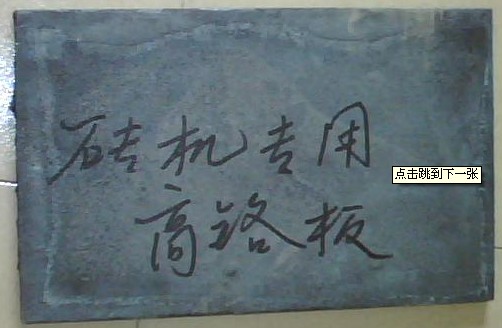 砖机专用
点击跳到下一张
高铬板